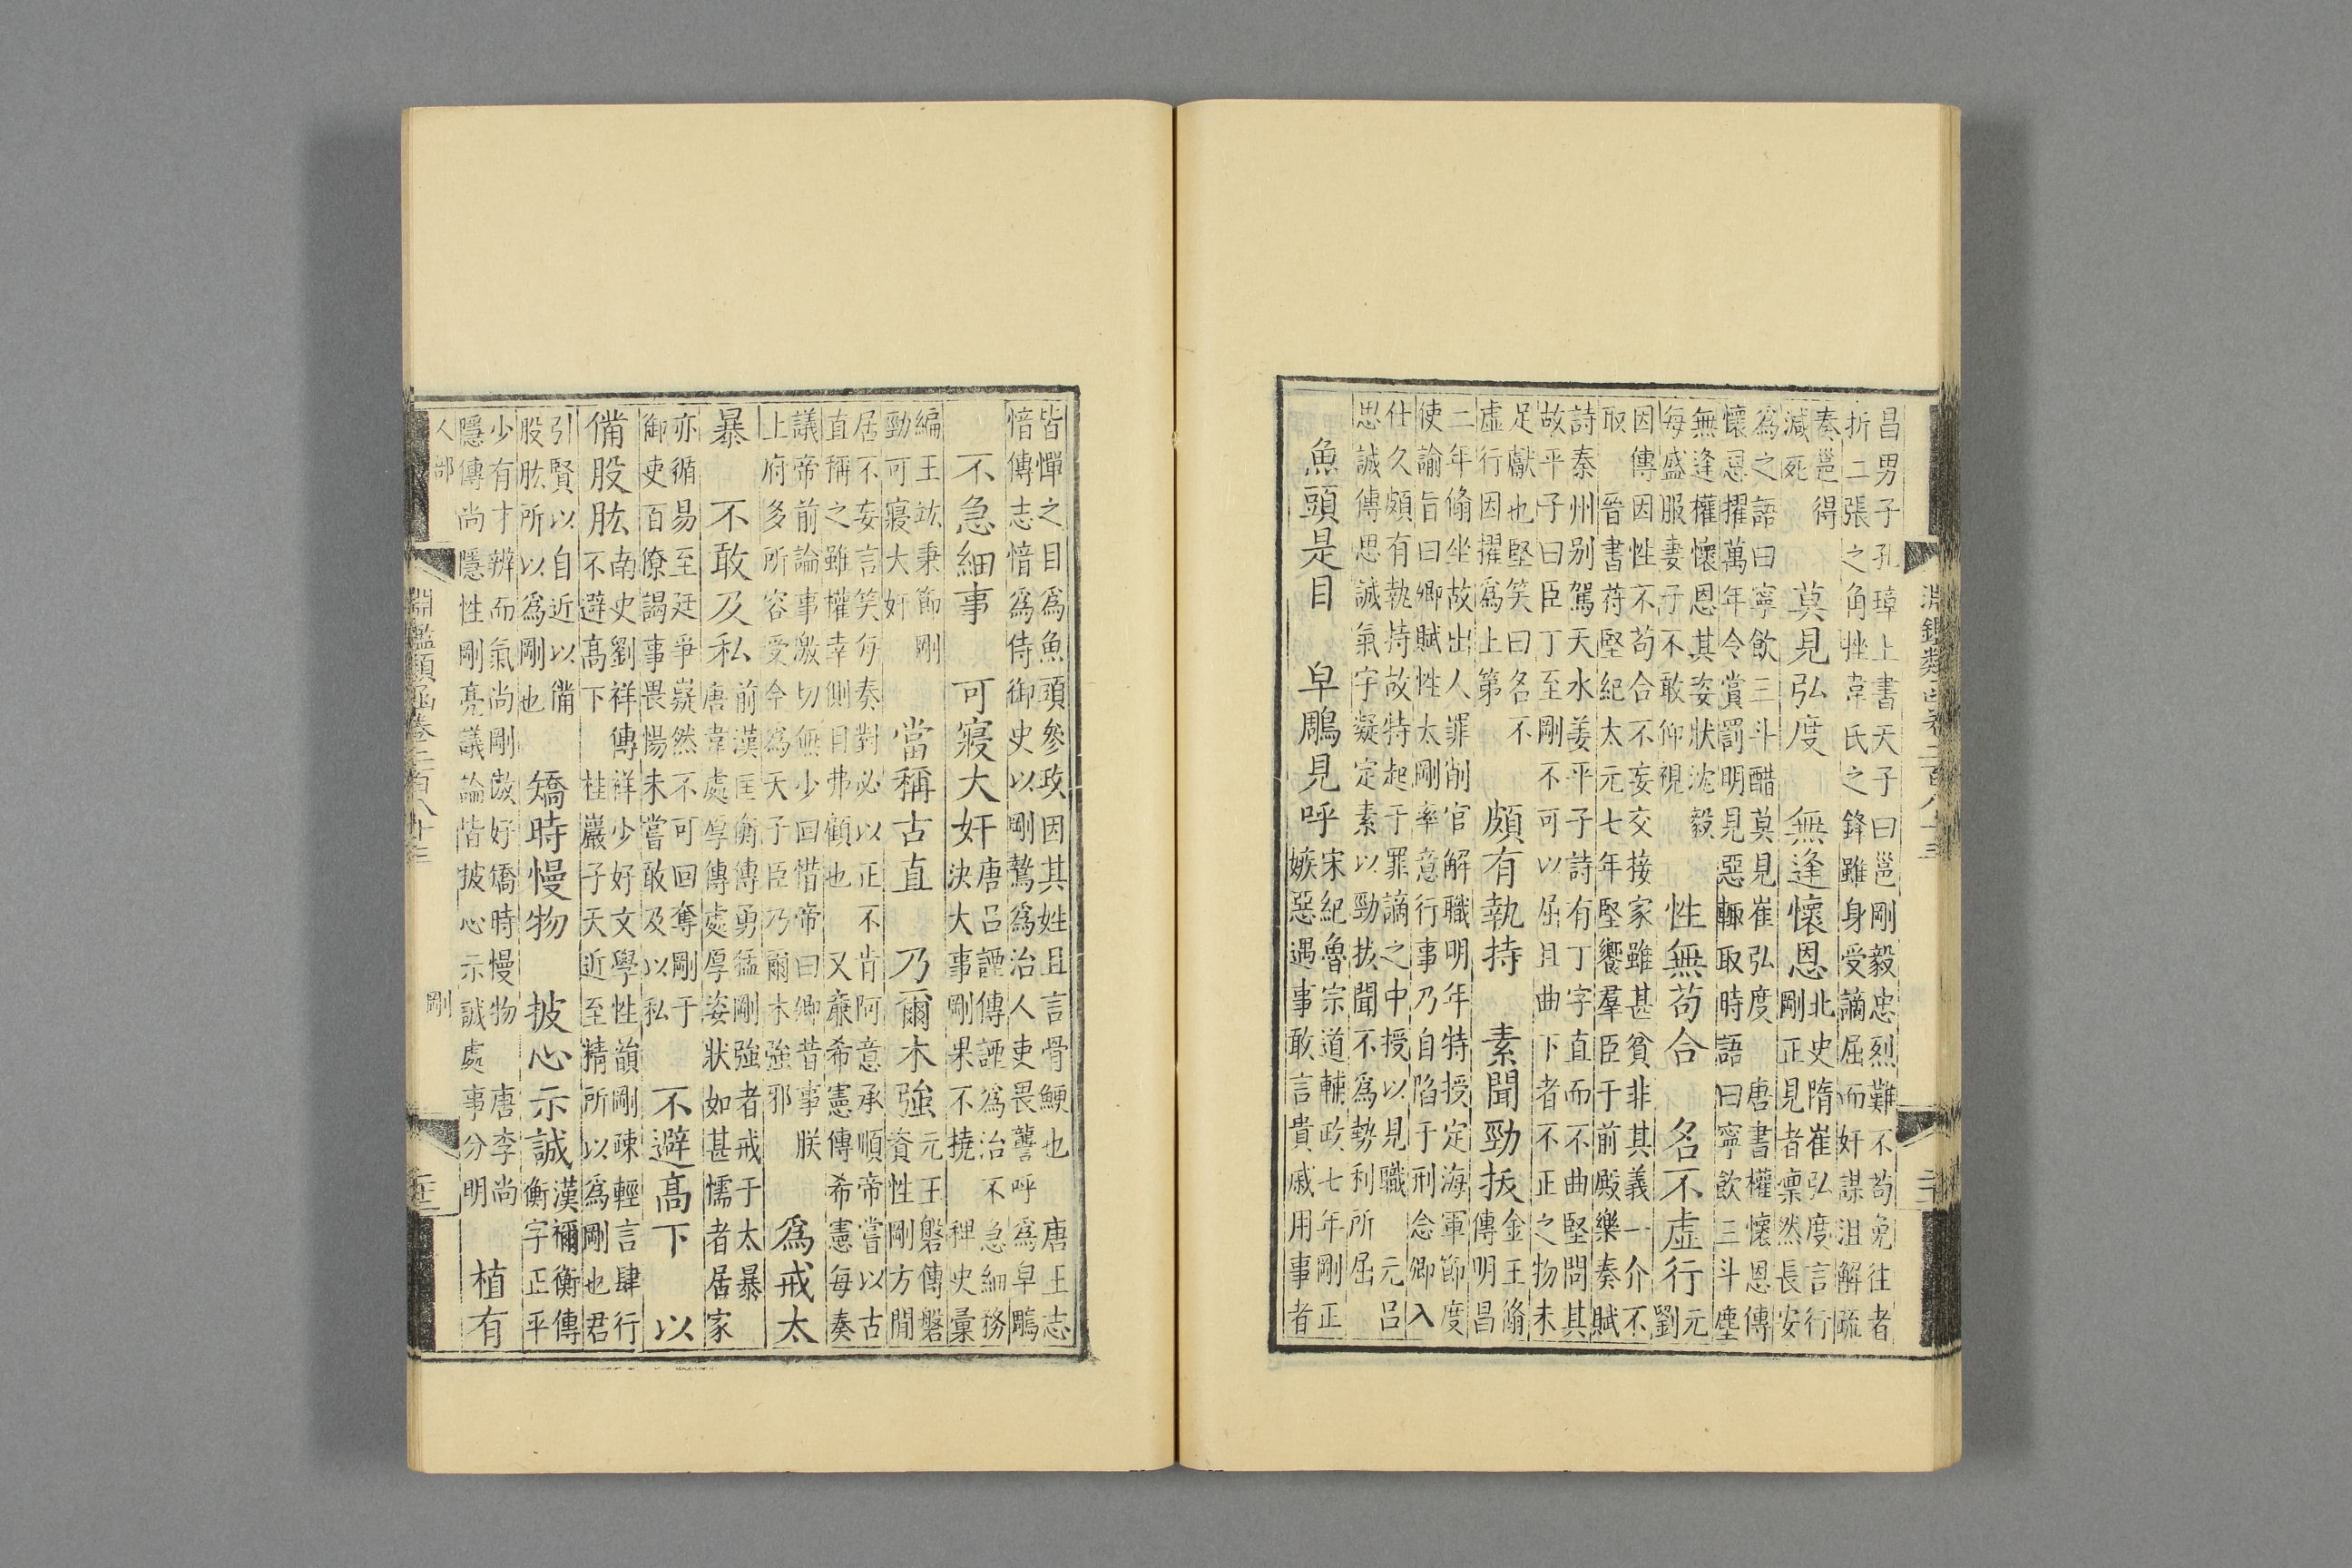 淵鑑類函卷二百八十三
昌男子孔璋上書天子曰邕剛毅忠烈難不苟免往者
折二張之角挫韋氏之鋒雖身受謫屈而奸謀沮解疏
奏邕得
減死
莫見弘度 無逢懷恩
北史隋崔弘度言行
剛正見者凛然長安
為之語曰寧飲三斗醋莫見崔弘度 唐書權懷恩傳
懷恩擢萬年令賞罰明見惡輒取時語曰寧飲三斗塵
無逢權懷恩其姿狀沈毅
每盛服妻子不敢仰視
性無苟合 名不虛行
元
劉
因傳因性不苟合不妄交接家雖甚貧非其義一介不
取 晉書苻堅紀太元七年堅饗羣臣于前殿樂奏賦
詩秦州别駕天水姜平子詩有丁字直而不曲堅問其
故平子曰臣丁至剛不可以屈且曲下者不正之物未
足獻也堅笑曰名不
虛行因擢為上第
頗有執持 素聞勁拔
金王翛
傳明昌
二年翛坐故出人罪削官解職明年特授定海軍節度
使諭旨曰卿賦性太剛率意行事乃自陷于刑念卿入
仕久頗有執持故特起于罪謫之中授以見職 元呂
思誠傳思誠氣宇凝定素以勁拔聞不為勢利所屈
魚頭是目 皁鵰見呼
宋紀魯宗道輔政七年剛正
嫉惡遇事敢言貴戚用事者
皆憚之目為魚頭參政因其姓且言骨鯁也 唐王志
愔傳志愔為侍御史以剛鷙為治人吏畏讋呼為皁鵰
不急細事 可寢大奸
唐呂諲傳諲為治不急細務
決大事剛果不撓 稗史彙
編王竑秉節剛
勁可寢大奸
當稱古直 乃爾木強
元王磐傳磐
資性剛方閒
居不妄言笑每奏對必以正不肯阿意承順帝嘗以古
直稱之雖權幸側目弗顧也 又㢘希憲傳希憲每奏
議帝前論事激切無少回惜帝曰卿昔事朕
上府多所容受今為天子臣乃爾木強邪
為戒太
暴 不敢及私
前漢匡衡傳勇猛剛強者戒于太暴
唐韋處厚傳處厚姿狀如甚懦者居家
亦循易至廷爭嶷然不可回奪剛于
御吏百僚謁事畏惕未嘗敢及以私
不避高下 以
備股肱
南史劉祥傳祥少好文學性韻剛疎輕言肆行
不避高下 桂巖子天近至精所以為剛也君
引賢以自近以備
股肱所以為剛也
矯時慢物 披心示誠
漢禰衡傳
衡字正平
少有才辨而氣尚剛傲好矯時慢物 唐李尚
隱傳尚隱性剛亮議論皆披心示誠處事分明
植有
人部 剛
淵鑑類函卷二百八十三